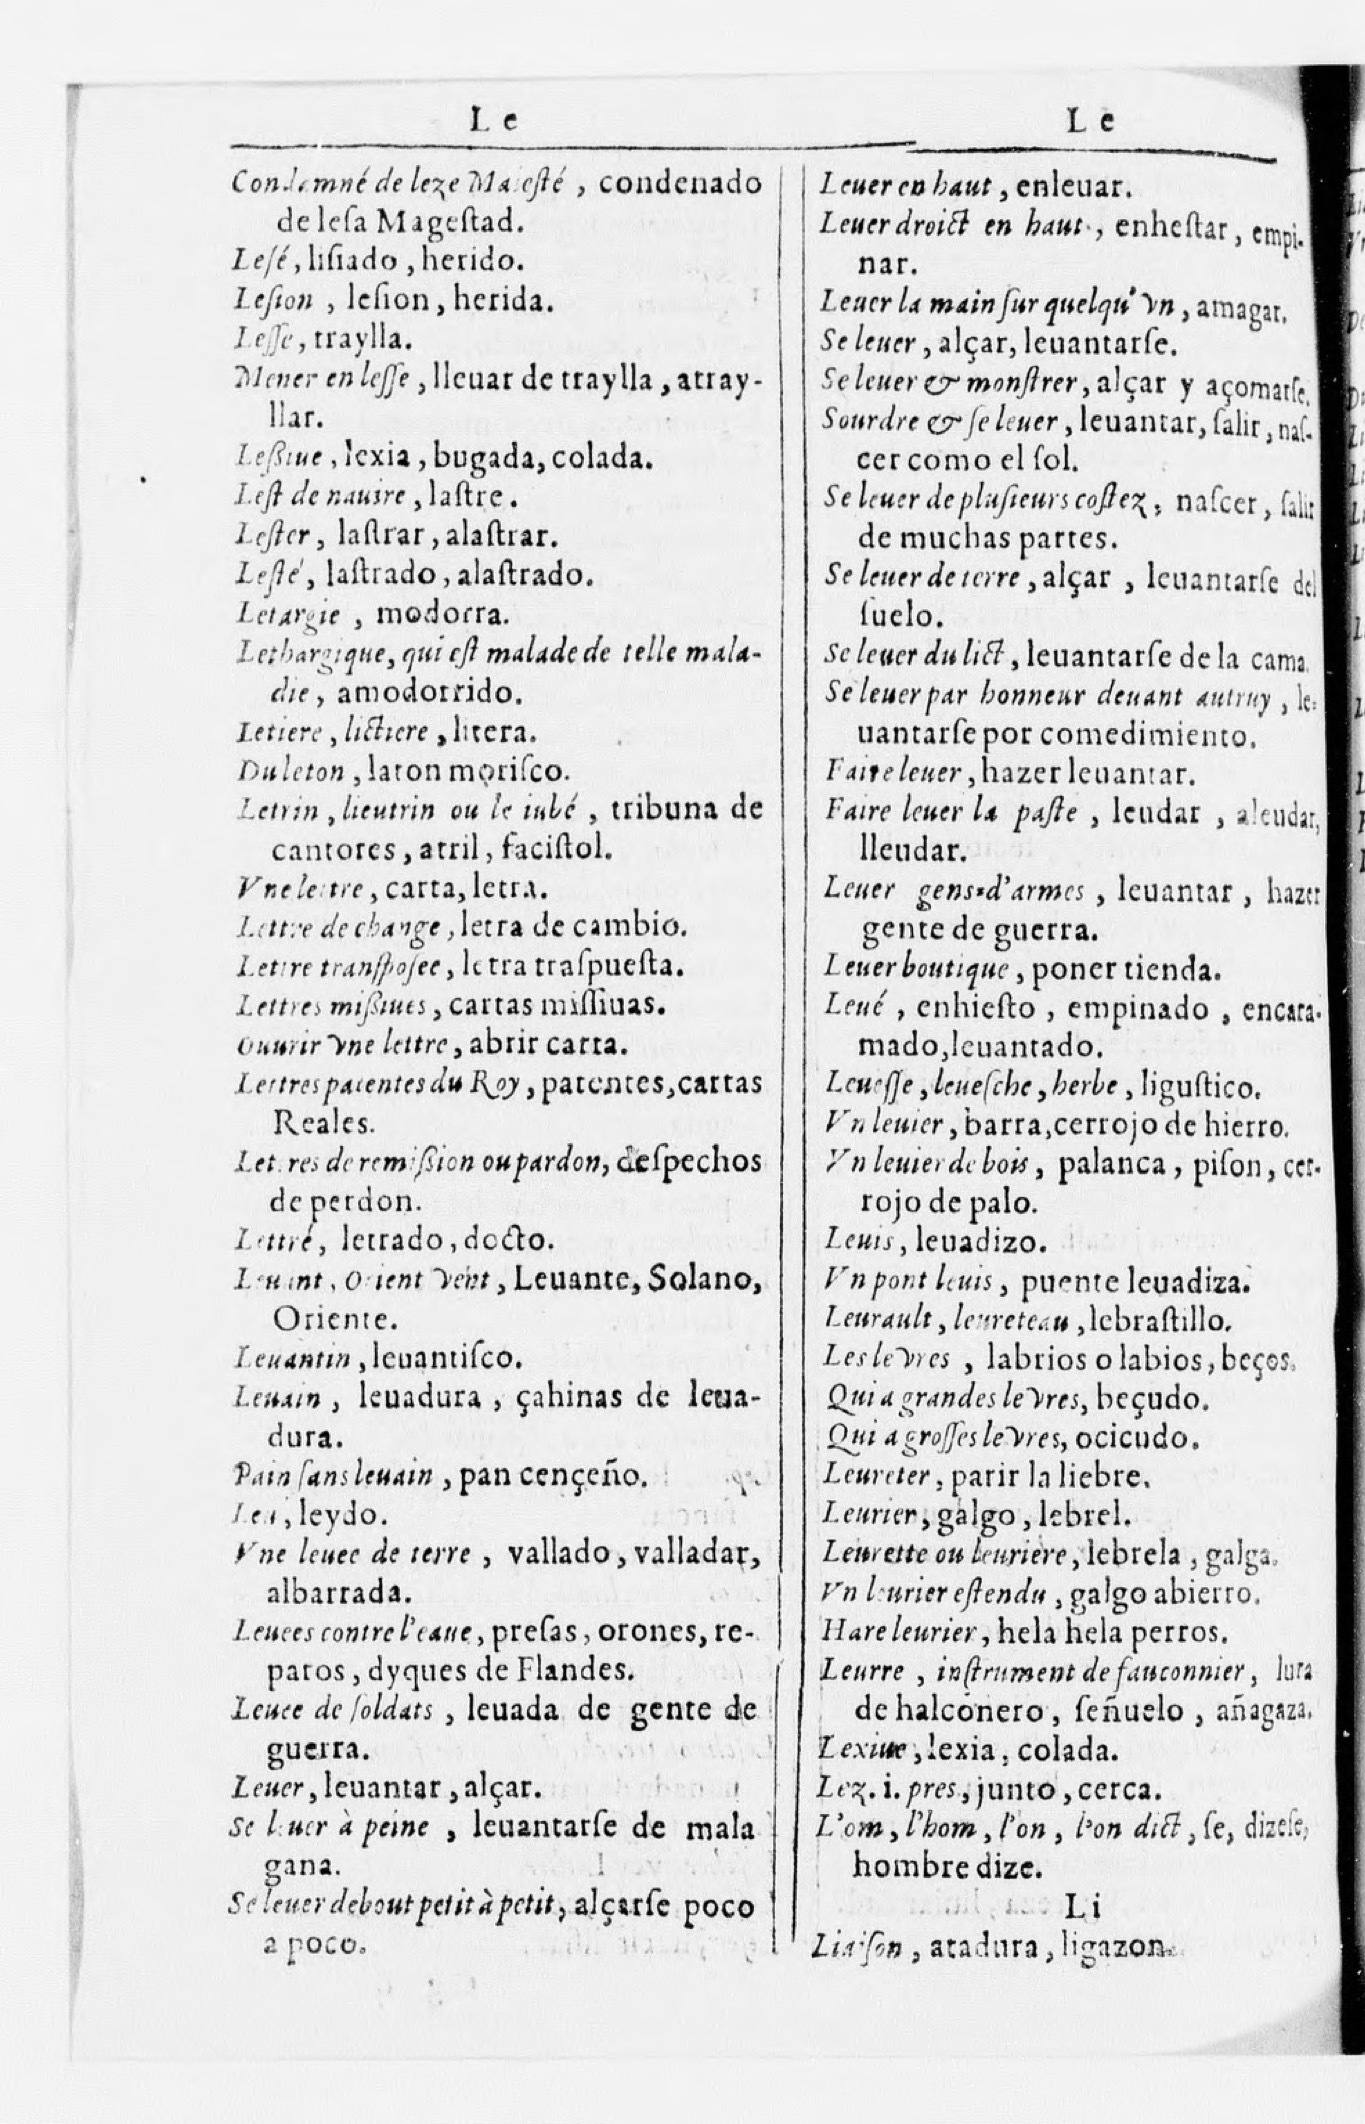 Le
Condamné de leze Maiesté, condenado
de lesa Magestad.
Lesé, lisiado, herido.
Lesion, lesion, herida.
Lesse, traylla.
Mener en lesse, lleuar de traylla, atray-
llar.
Leßiue, lexia, bugada, colada.
Lest de nauire, lastre.
Lester, lastrar, alastrar.
Lesté, lastrado, alastrado.
Letargie, modorra.
Lethargique, qui est malade de telle mala-
die, amodorrido.
Letiere, lictiere, litera.
Du leton, laton morisco.
Letrin, lieutrin ou le iubé, tribuna de
cantores, atril, facistol.
Vne lettre, carta, letra.
Lettre de change, letra de cambio.
Lettre transposee, letra traspuesta.
Lettres mißiues, cartas missiuas.
Ouurir vne lettre, abrir carta.
Lettres patentes du Roy, patentes, cartas
Reales.
Lettres de remißion ou pardon, despechos
de perdon.
Lettré, letrado, docto.
Leuant, Orient vent, Leuante, Solano,
Oriente.
Leuantin, leuantisco.
Leuain, leuadura, çahinas de leua-
dura.
Pain sans leuain, pan cençeño.
Leu, leydo.
Vne leuee de terre, vallado, valladar,
albarrada.
Leuees contre l'eaue, presas, orones, re-
paros, dyques de Flandes.
Leuee de soldats, leuada de gente de
guerra.
Leuer, leuantar, alçar.
Se leuer à peine, leuantarse de mala
gana.
Se leuer debout petit à petit, alçarse poco
a poco.
Le
Leuer en haut, enleuar.
Leuer droict en haut, enhestar, empi-
nar.
Leuer la main sur quelqu'vn, amagar.
Se leuer, alçar, leuantarse.
Se leuer & monstrer, alçar y açomarse.
Sourdre & se leuer, leuantar, salir, nas-
cer como el sol.
Se leuer de plusieurs costez, nascer, salir
de muchas partes.
Se leuer de terre, alçar, leuantarse del
suelo.
Se leuer du lict, leuantarse de la cama.
Se leuer par honneur deuant autruy, le-
uantarse por comedimiento.
Faire leuer, hazer leuantar.
Faire leuer la paste, leudar, aleudar,
lleudar.
Leuer gens-d'armes, leuantar, hazer
gente de guerra.
Leuer boutique, poner tienda.
Leué, enhiesto, empinado, encara-
mado, leuantado.
Leuesse, leuesche, herbe, ligustico.
Vn leuier, barra, cerrojo de hierro.
Vn leuier de bois, palanca, pison, cer-
rojo de palo.
Leuis, leuadizo.
Vn pont leuis, puente leuadiza.
Leurault, leureteau, lebrastillo.
Les levres, labrios o labios, beços.
Qui a grandes levres, beçudo.
Qui a grosses levres, ocicudo.
Leureter, parir la liebre.
Leurier, galgo, lebrel.
Leurette ou leuriere, lebrela, galga.
Vn leurier estendu, galgo abierro.
Hare leurier, hela hela perros.
Leurre, instrument de fauconnier, lura
de halconero, señuelo, añagaza.
Lexiue, lexia, colada.
Lez. i. pres, junto, cerca.
L'om, l'hom, l'on, l'on dict, se, dizese,
hombre dize.
Li
Liaison, atadura, ligazon.